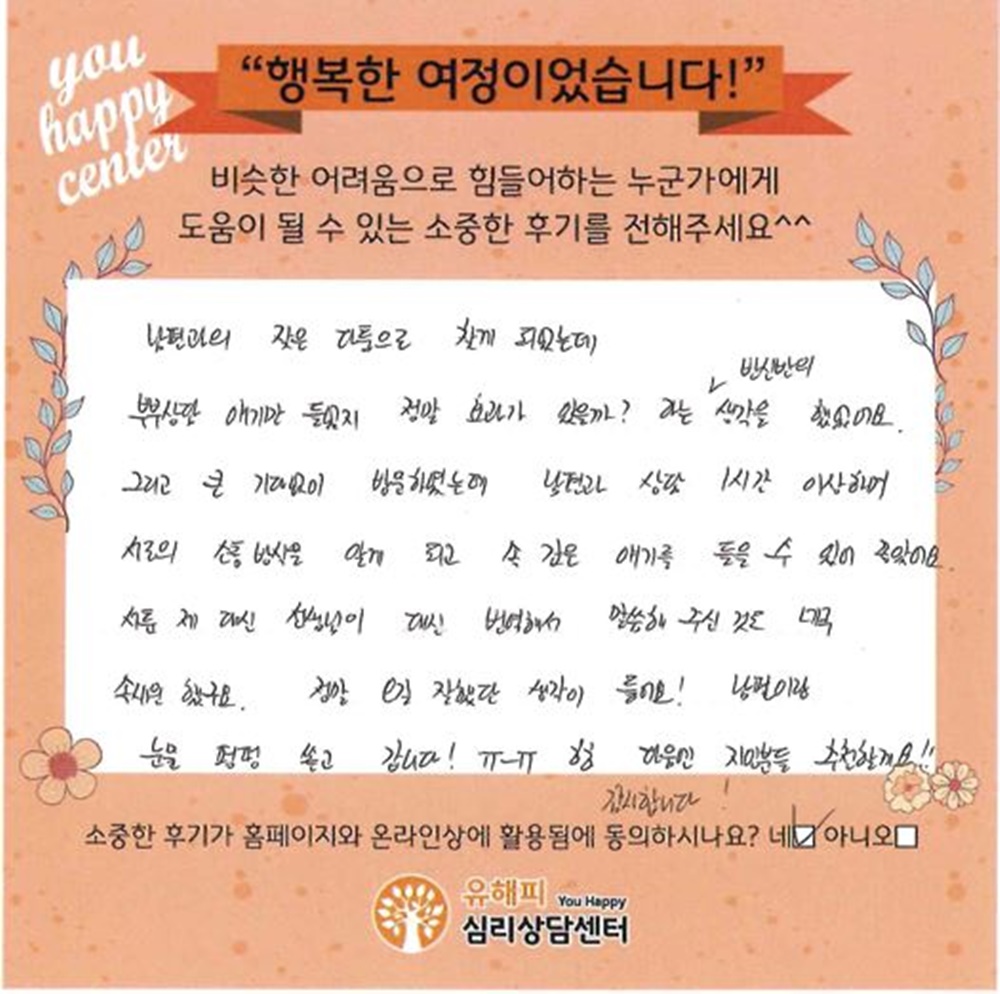 you
happy
center
“행복한 여정이었습니다!”
비슷한 어려움으로 힘들어하는 누군가에게
도움이 될 수 있는 소중한 후기를 전해주세요^^
남편과의 잦은 다툼으로 찾게 되었는데
반신반의
부부상담 얘기만 들었지 정말 효과가 있을까? 하는 생각을 했었어요.
그리고 큰 기대없이 방문하였는데 남편과 상담 1시간 이상하며
서로의 소통방식을 알게 되고 속 깊은 얘기를 들을 수 있어 좋았어요.
서툰 제 대신 선생님이 대신 번역해서 말씀해 주신 것도
속시원 했구요. 정말 오길 잘했단 생각이 들어요! 남편이랑
눈물 펑펑 쏟고 갑니다! ㅠ-ㅠ 지인분들 추천할게요!!
감사합니다!
소중한 후기가 홈페이지와 온라인상에 활용됨에 동의하시나요? 네☑ 아니오☐
유해피 You Happy
심리상담센터